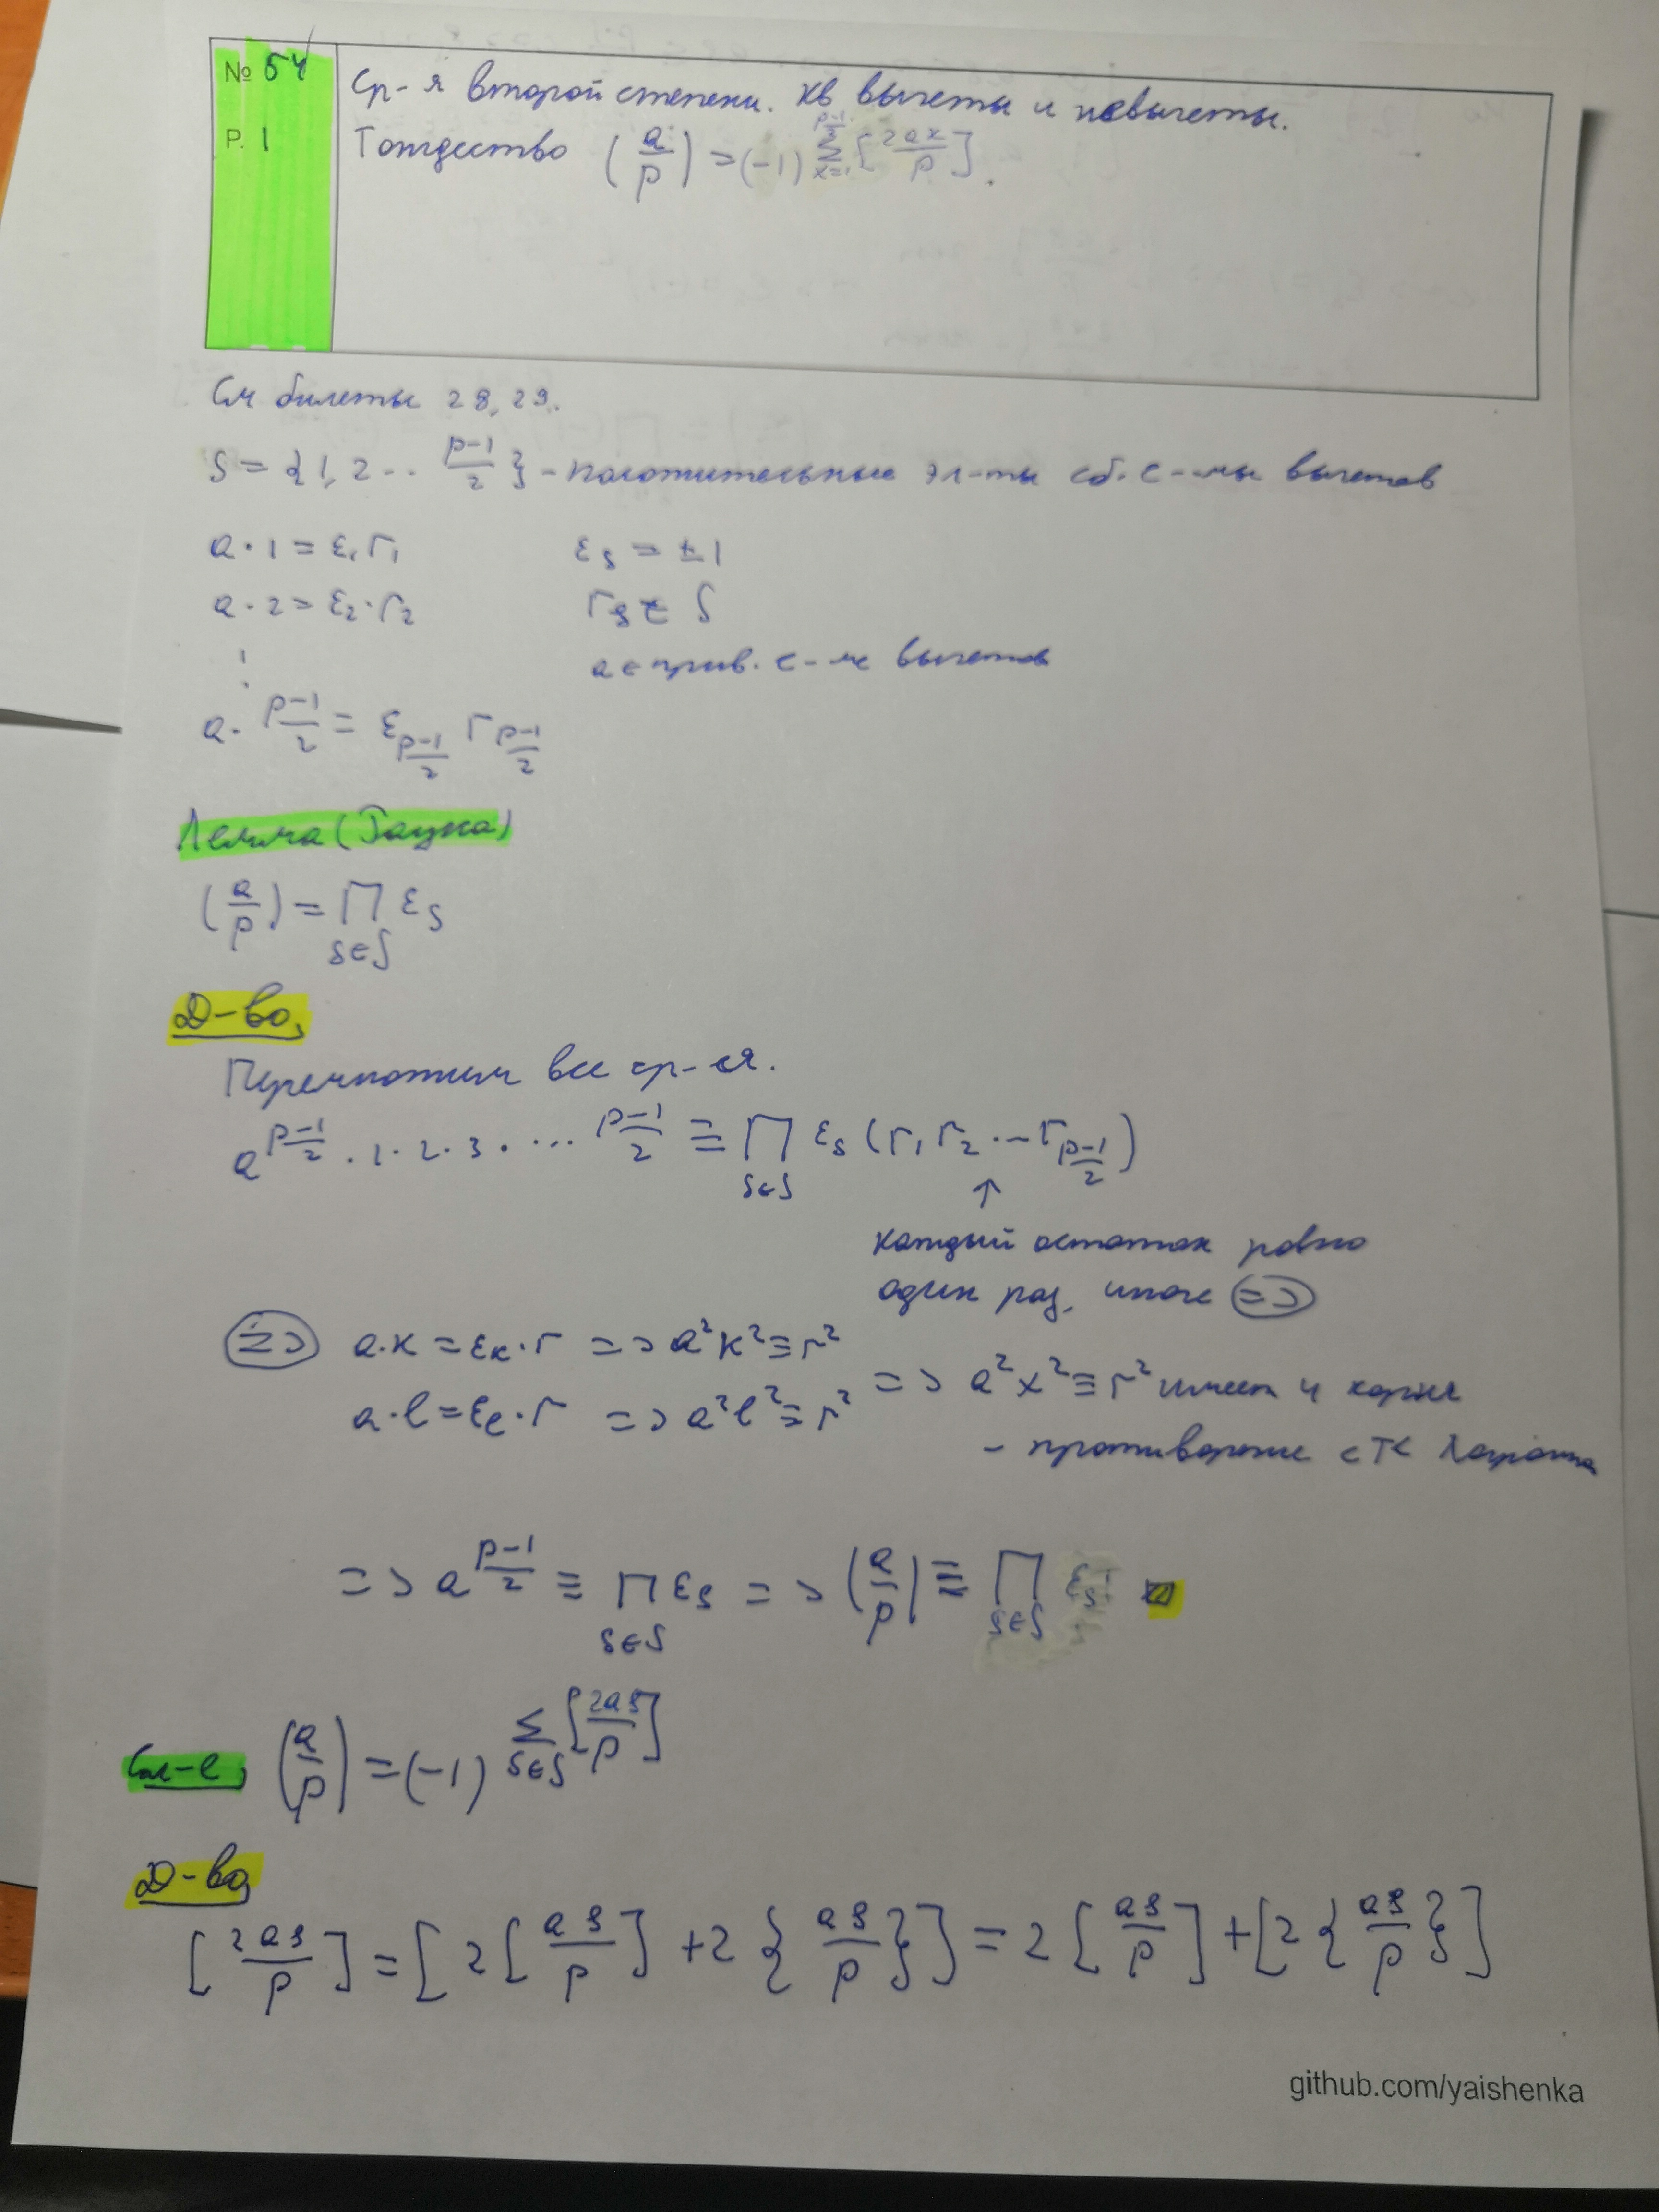 № 54
Ср-я второй степени. Кв вычеты и невычеты.
P. 1
Тождество (a/p) = (-1)^{\sum_{x=1}^{\frac{p-1}{2}} [\frac{2ax}{p}]}.
См билеты 28, 29.
S = {1, 2 .. \frac{p-1}{2}} - положительные эл-ты сб. с-мы вычетов
a · 1 = ε₁ r₁ ε_s = ±1
a · 2 = ε₂ · r₂ r_s ∈ S
⋮ a ∈ прив. с-ме вычетов
a · \frac{p-1}{2} = ε_{\frac{p-1}{2}} r_{\frac{p-1}{2}}
Лемма (Гаусса)
(a/p) = ∏_{s∈S} ε_s
Д-во,
Перемножим все ср-ия.
a^{\frac{p-1}{2}} · 1 · 2 · 3 · ... \frac{p-1}{2} ≡ ∏_{s∈S} ε_s (r₁ r₂ ... r_{\frac{p-1}{2}})
↑
каждый остаток ровно
один раз, иначе =>
=> a·k = ε_k · r => a²k² ≡ r²
a·l = ε_l · r => a²l² ≡ r² => a²x² ≡ r² имеет 4 корня
- противоречие с ТЕ Лагранжа
=> a^{\frac{p-1}{2}} ≡ ∏_{s∈S} ε_s => (a/p) ≡ ∏_{s∈S} ε_s
Сл-е, (a/p) = (-1)^{\sum_{s∈S} [\frac{2as}{p}]}
Д-во,
[\frac{2as}{p}] = [2[\frac{as}{p}] + 2{\frac{as}{p}}] = 2[\frac{as}{p}] + [2{\frac{as}{p}}]
github.com/yaishenka